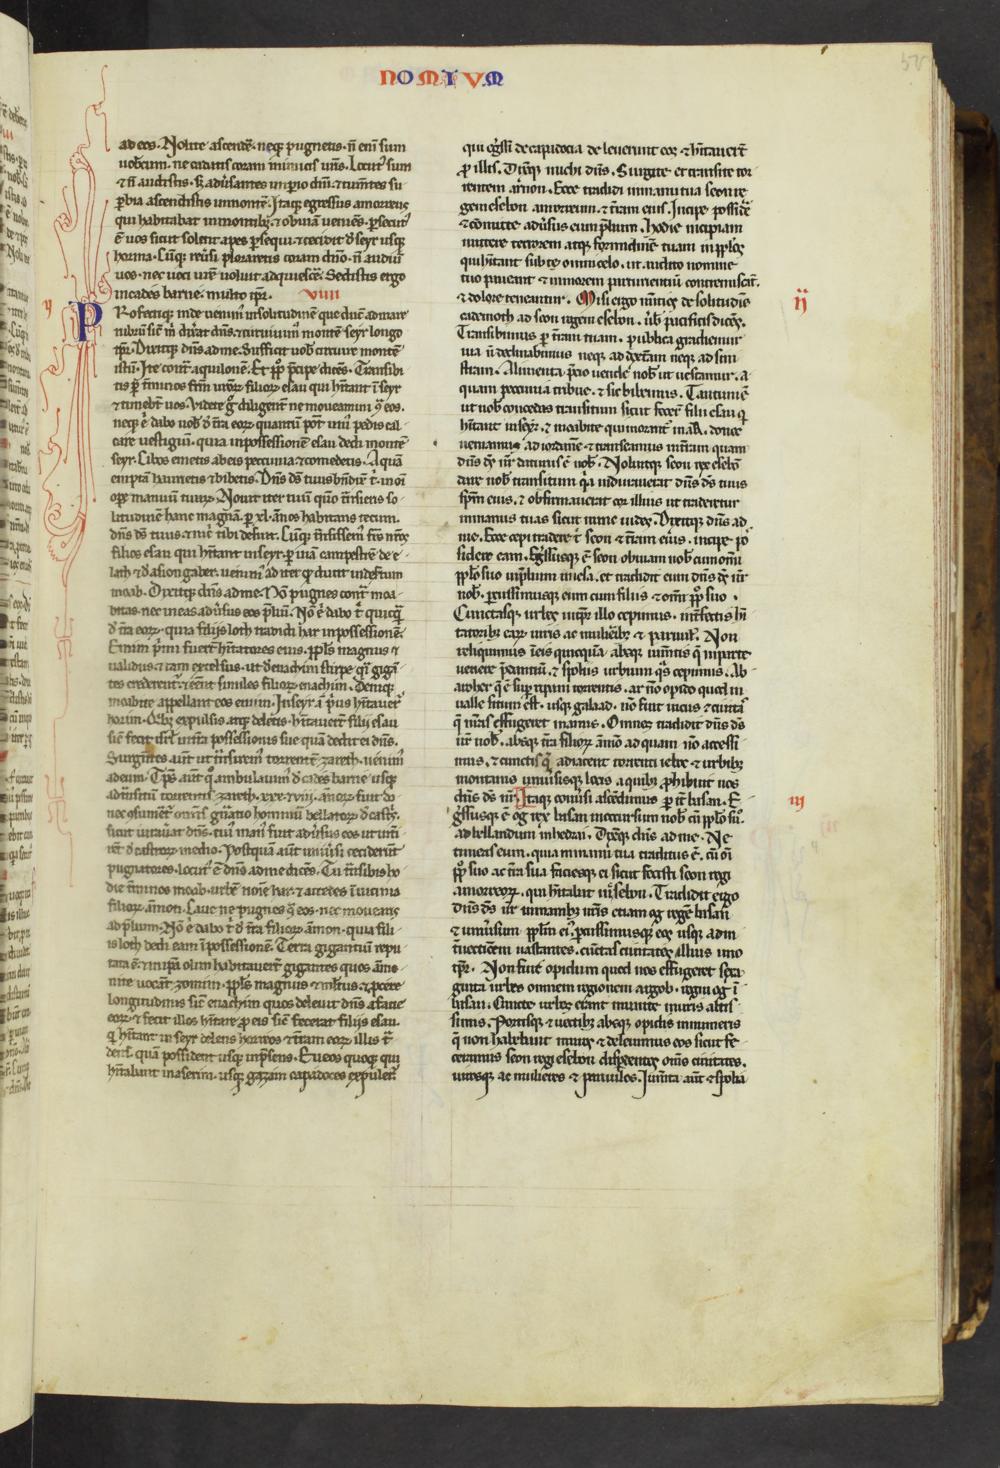 NOMIVM
ad eos. Nolite ascendere. neque pugnetis. nō enī sum
uobcum. ne cadatis coram inimicis urīs. Locutꝰ sum
⁊ nō audistis. s; aduersantes imperio dnī. ⁊ tumentes su
perbia ascendistis in montē. Itaque egressus amorreus
qui habitabat in montibꝫ ⁊ obuiā ueniēs. persecutꝰ
ē uos sicut solent apes persequi. ⁊ cecidit de seyr usque
horma. Cūque reuersi ploraretis coram dno. nō audiuit
uos. nec uoci urē uoluit adquiescere. Sedistis ergo
in cades barne. multo tpr. VIIII
Profectique inde uenimꝰ in solitudinē que ducit ad mare
rubrū sic m dixerat dns. ⁊ circuiuimꝰ montē seyr longo
tpr. Dixitque dns ad me. Sufficit uob circuire montē
istū. Ite contra aquilonē. Et pplo precipe dicēs. Transibi
tis per tminos frm urōꝝ filioꝝ esau qui hitant ī seyr
⁊ timebt uos. Videte g diligent ne moueamini ꝯ eos.
neque ē dabo uob de tra eoꝝ quantū pot unꝰ pedis cal
care uestigiū. quia in possessionē esau dedi montē
seyr. Cibos emetis ab eis pecunia. ⁊ comedetis. Aquā
emptā haurietis ⁊ bibetis. Dns ds tuus bndixit t. in oī
ope manuū tuaꝝ. Nouit iter tuū quo trnsieris so
litudinē hanc magnā. per xl. annos habitans tecum.
dns ds tuus. ⁊ nic tibi defuit. Cūque trnsissemꝰ frs nros
filios esau qui hitant in seyr. per uiā campestrē de e
lath ⁊ de asiongaber. uenimꝰ ad iter qd ducit in desertum
moab. Dixitque dns ad me. Nō pugnes contra moa
bitas. nec ineas aduersus eos preliū. Nō ē dabo t quicqua
de tra eoꝝ. quia filiis loth tradidi har in possessionē.
Emim primi fuert hitatores eius. ppls magnus ⁊
ualidus. ⁊ tam excelsus. ut de enachim stirpe qsi gigan
tes crederentr. ⁊ eēnt similes filioꝝ enachim. Denique
moabite appellant eos emim. In seyr ā priꝰ hitauert
horim. Qibꝫ expulsis. atque deletis. hitauert filii esau
sic fecit isrl in tra possessionis sue quā dedit ei dns.
Surgentes aut ut trnsiremꝰ torrentē zareth. uenimꝰ
ad eum. Tps aut qo ambulauimꝰ de cades barne usque
ad trnsitū torrentis zareth. xxx. ⁊ viii. annoꝝ fuit do
nec ꝯsumeret omis gnatio hominū bellatoꝝ de castris.
sicut iurauerat dns. cuiꝰ manꝰ fuit aduersus eos ut interi
rent de castroꝝ medio. Postquā aut uniusi ceciderūt
pugnatores. locutꝰ ē dns ad me dicēs. Tu trnsibis ho
die tminos moab. urbē noīe har. ⁊ accedes ī uicina
filioꝝ āmon. Caue ne pugnes ꝯ eos. nec mouearis
ad preliū. Nō ē dabo t de tra filioꝝ āmon. quia fili
is loth dedi eam ī possessionē. Terra gigantiū repu
tata ē. ⁊ in ipā olim habitauert gigantes quos āmo
nite uocāt zomim. ppls magnus ⁊ multus. ⁊ pcere
longitudinis sic enachim quos deleuit dns a facie
eoꝝ. ⁊ fecit illos hitare pro eis sic fecerat filiis esau.
qi hitant in seyr delens horreos ⁊ tram eoꝝ illis t
dens. quā possident usque in presens. Eueos quoque qui
hitabant in aserim. usque gazam capadoces expulert
qui egssi de capadocia deleuerunt eos. ⁊ hitauert
pro illis. Dixitque michi dns. Surgite. et transite tor
rentem arnon. Ecce tradidi in manu tua seon re
gem esebon amorreum. ⁊ tram eius. Incipe possidere
⁊ comitte aduersus eum prelium. Hodie incipiam
mittere terrorem atque formidinē tuam in pplos
qui hitant sub omni celo. ut audito nomine
tuo paueant ⁊ in morem parturientiū contremiscāt.
⁊ dolore teneantur. Misi ergo nuntios de solitudine II
cademoth ad seon regem esebon. ubis pacificis dicēs.
Transibimus per tram tuam. publica gradiemur
uia. nō declinabimus neque ad dextram neque ad sini
stram. Alimenta precio uende nob ut uescamur. a
quam pecunia tribue. ⁊ sic bibemus. Tantum ē
ut nob concedas transitum sicut fecert filii esau qi
hitant in seyr. ⁊ moabite qui morant in ar. donec
ueniamus ad iordanē ⁊ transeamus in tram quam
dns ds nr daturus ē nob. Noluitque seon rex esebon
dare nob transitum. qa indurauerat dns ds tuus
spm eius. ⁊ obfirmauerat cor illius ut traderetur
in manus tuas sicut nunc uides. Dixitque dns ad
me. Ecce cepi tradere t seon ⁊ tram eius. incipe po
sidere eam. Egssusque ē seon obuiam nob cum omī
pplo suo in prelium in iesa. et tradidit eum dns ds nr
nob. percussimusque eum cum filiis ⁊ omī pplo suo.
Cunctasque urbes in tpr illo cepimus. intfectis hi
tatoribꝫ earꝝ uiris ac mulieribꝫ ⁊ paruul. Non
reliquimus in eis quicquā. absque iumtis q in parte
uenere predantiū. ⁊ spoliis urbium qas cepimus. Ab
aroher que ē sup ripam torrentis. ar no opido quod in
ualle situm est. usque galaad. no fuit uicus ⁊ ciuitas
que nras effugeret manus. Omnes tradidit dns ds
nr nob. absque tra filioꝝ āmo ad quam no accessi
mus. ⁊ cunctis que adiacent torrenti ieboc ⁊ urbibꝫ
montanis uniuisisque locis a quibꝫ prohibuit nos
dns ds nr. Itaque conuersi ascēdimus per iter basan. E III
gssusque ē og rex basan in occursum nob cū pplo suo.
ad bellandum in hedrai. Dixitque dns ad me. Ne
timeas eum. quia in manu tua traditus ē. cū omi
pplo suo ac tra sua faciesque ei sicut fecisti seon regi
amorreoꝝ. qui hitabat in esebon. Tradidit ergo
dns ds nr in manibꝫ nris etiam og regē basan
⁊ uniusum pplm eiꝰ. percussimusque eos usque ad in
tnectionem uastantes. cunctas ciuitates illius uno
tpr. Non fuit opidum quod nos effugeret sexa
ginta urbes omnem regionem argob. regni og ī
basan. Cuncte urbes erant munite muris altis
simis. Portisque ⁊ uectibꝫ absque opidis innumeris
que non habebant muros ⁊ deleuimus eos sicut fe
ceramus seon regi esebon disperdentes omēs ciuitates.
uirosque ac mulieres ⁊ paruulos. Iumta aut ⁊ spolia